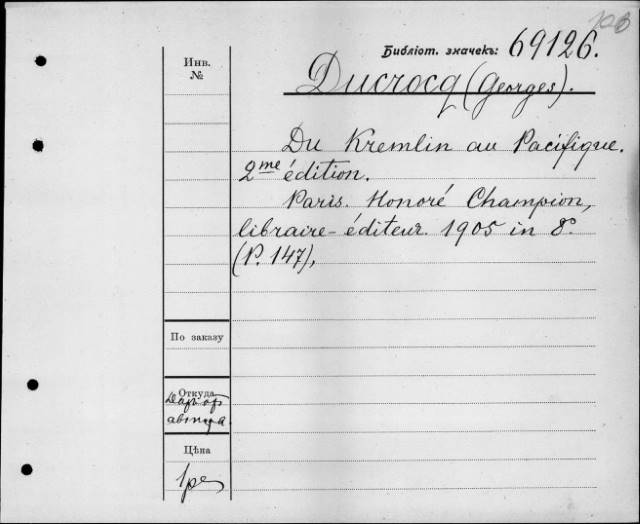 106
Библіот. значекъ: 69126.
Инв.
№
Ducrocq (Georges).
Du Kremlin au Pacifique.
2me édition.
Paris. Honoré Champion,
libraire-éditeur. 1905 in 8°
(P. 147),
По заказу
Откуда
Даръ от
автора
Цѣна